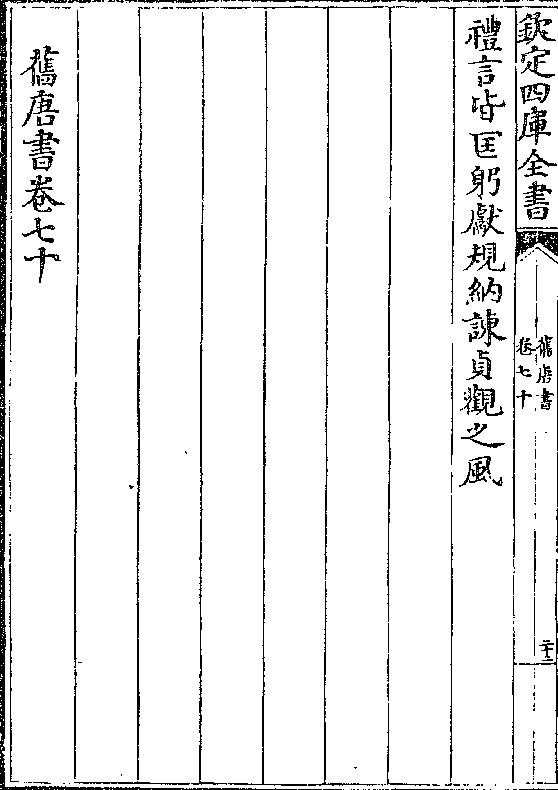 欽定四庫全書
舊唐書
卷七十
二十三
禮言皆匡躬獻規納諫貞觀之風
舊唐書卷七十